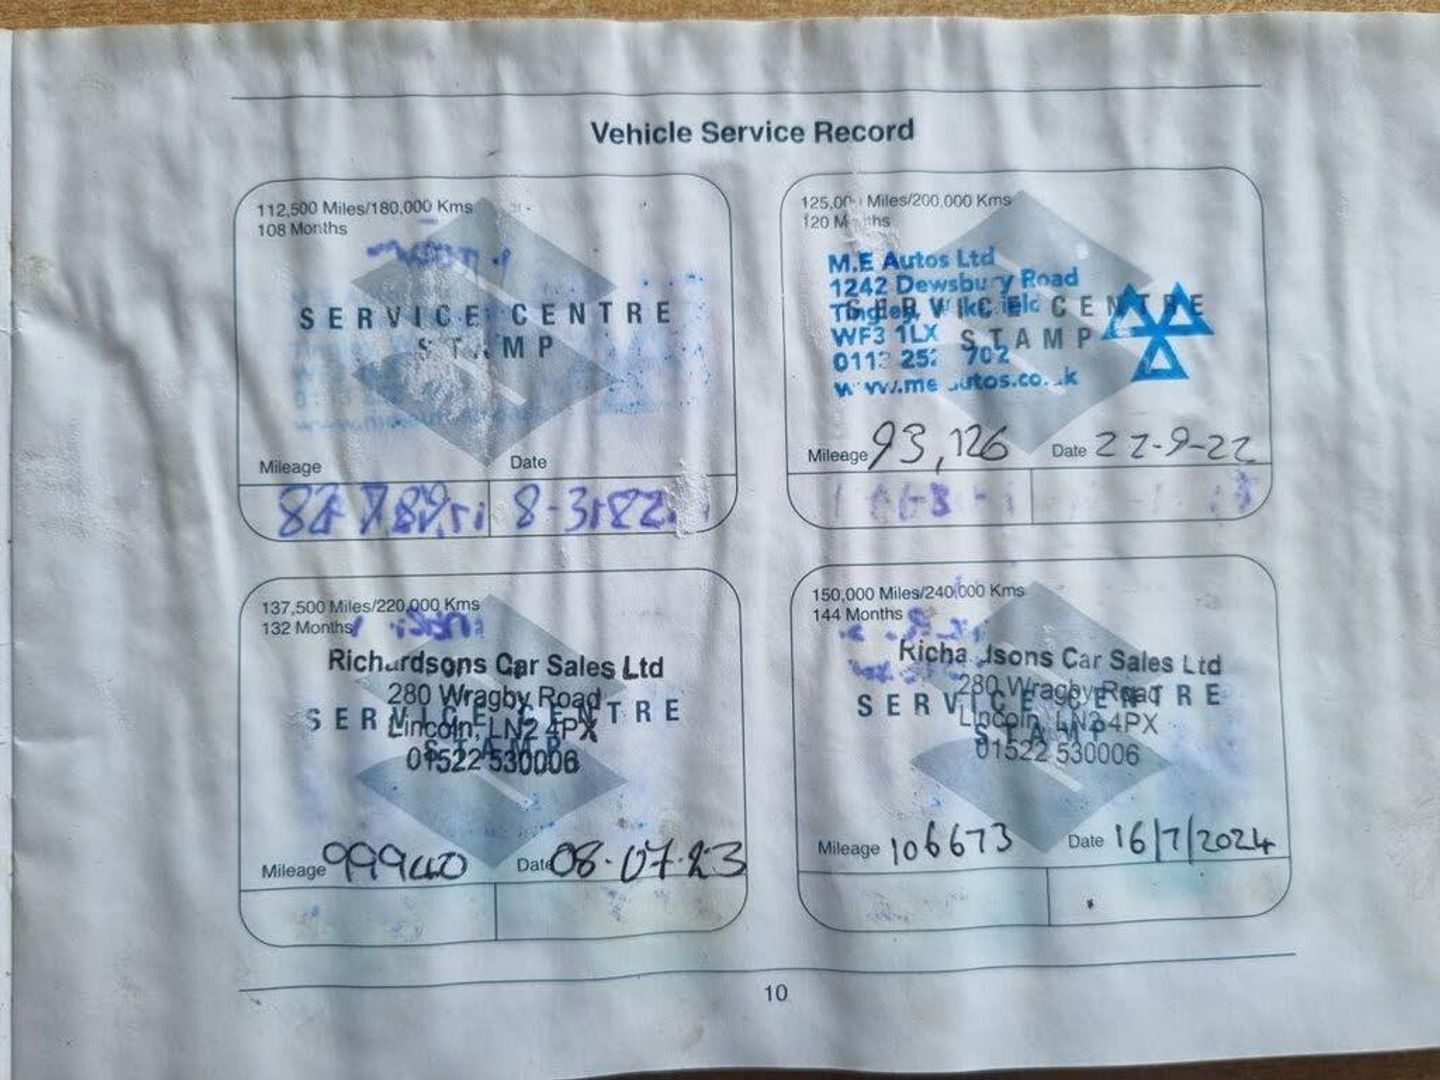 Vehicle Service Record
112,500 Miles/180,000 Kms
108 Months
SERVICE CENTRE
STAMP
Mileage
Date
8-3-22
125,00 Miles/200,000 Kms
120 Months
M.E Autos Ltd
1242 Dewsbury Road
SERVICE CENTRE
WF3 1LX
STAMP
0113 25 702
Mileage 93,126 Date 22-9-22
137,500 Miles/220,000 Kms
132 Months
Richardsons Car Sales Ltd
280 Wragby Road
SERVICE CENTRE
Lincoln, LN2 4PX
STAMP
01522 530006
Mileage 99940 Date 08-07-23
150,000 Miles/240,000 Kms
144 Months
Richardsons Car Sales Ltd
280 Wragby Road
SERVICE CENTRE
Lincoln, LN2 4PX
STAMP
01522 530006
Mileage 106673 Date 16/7/2024
10